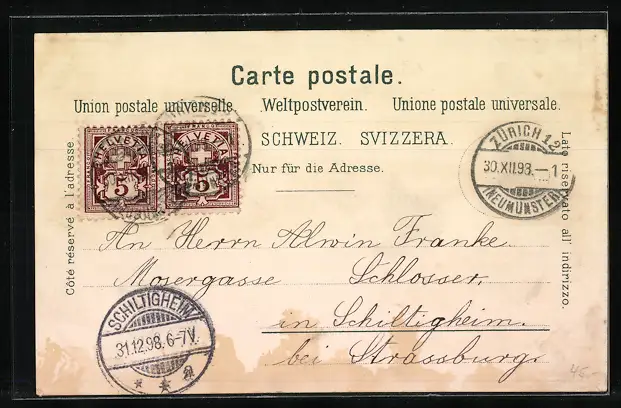 Carte postale.
Union postale universelle. Weltpostverein. Unione postale universale.
SCHWEIZ. SVIZZERA.
Nur für die Adresse.
Côté réservé à l'adresse.
Lato riservato all' indirizzo.
HELVETIA HELVETIA
5 5
ZÜRICH 12
30.XII.98.–1
(NEUMÜNSTER)
An Herrn Alwin Franke
Mosergasse Schlosser,
in Schiltigheim.
bei Strassburg.
SCHILTIGHEIM
31.12.98.6-7V.
* * a
46.-